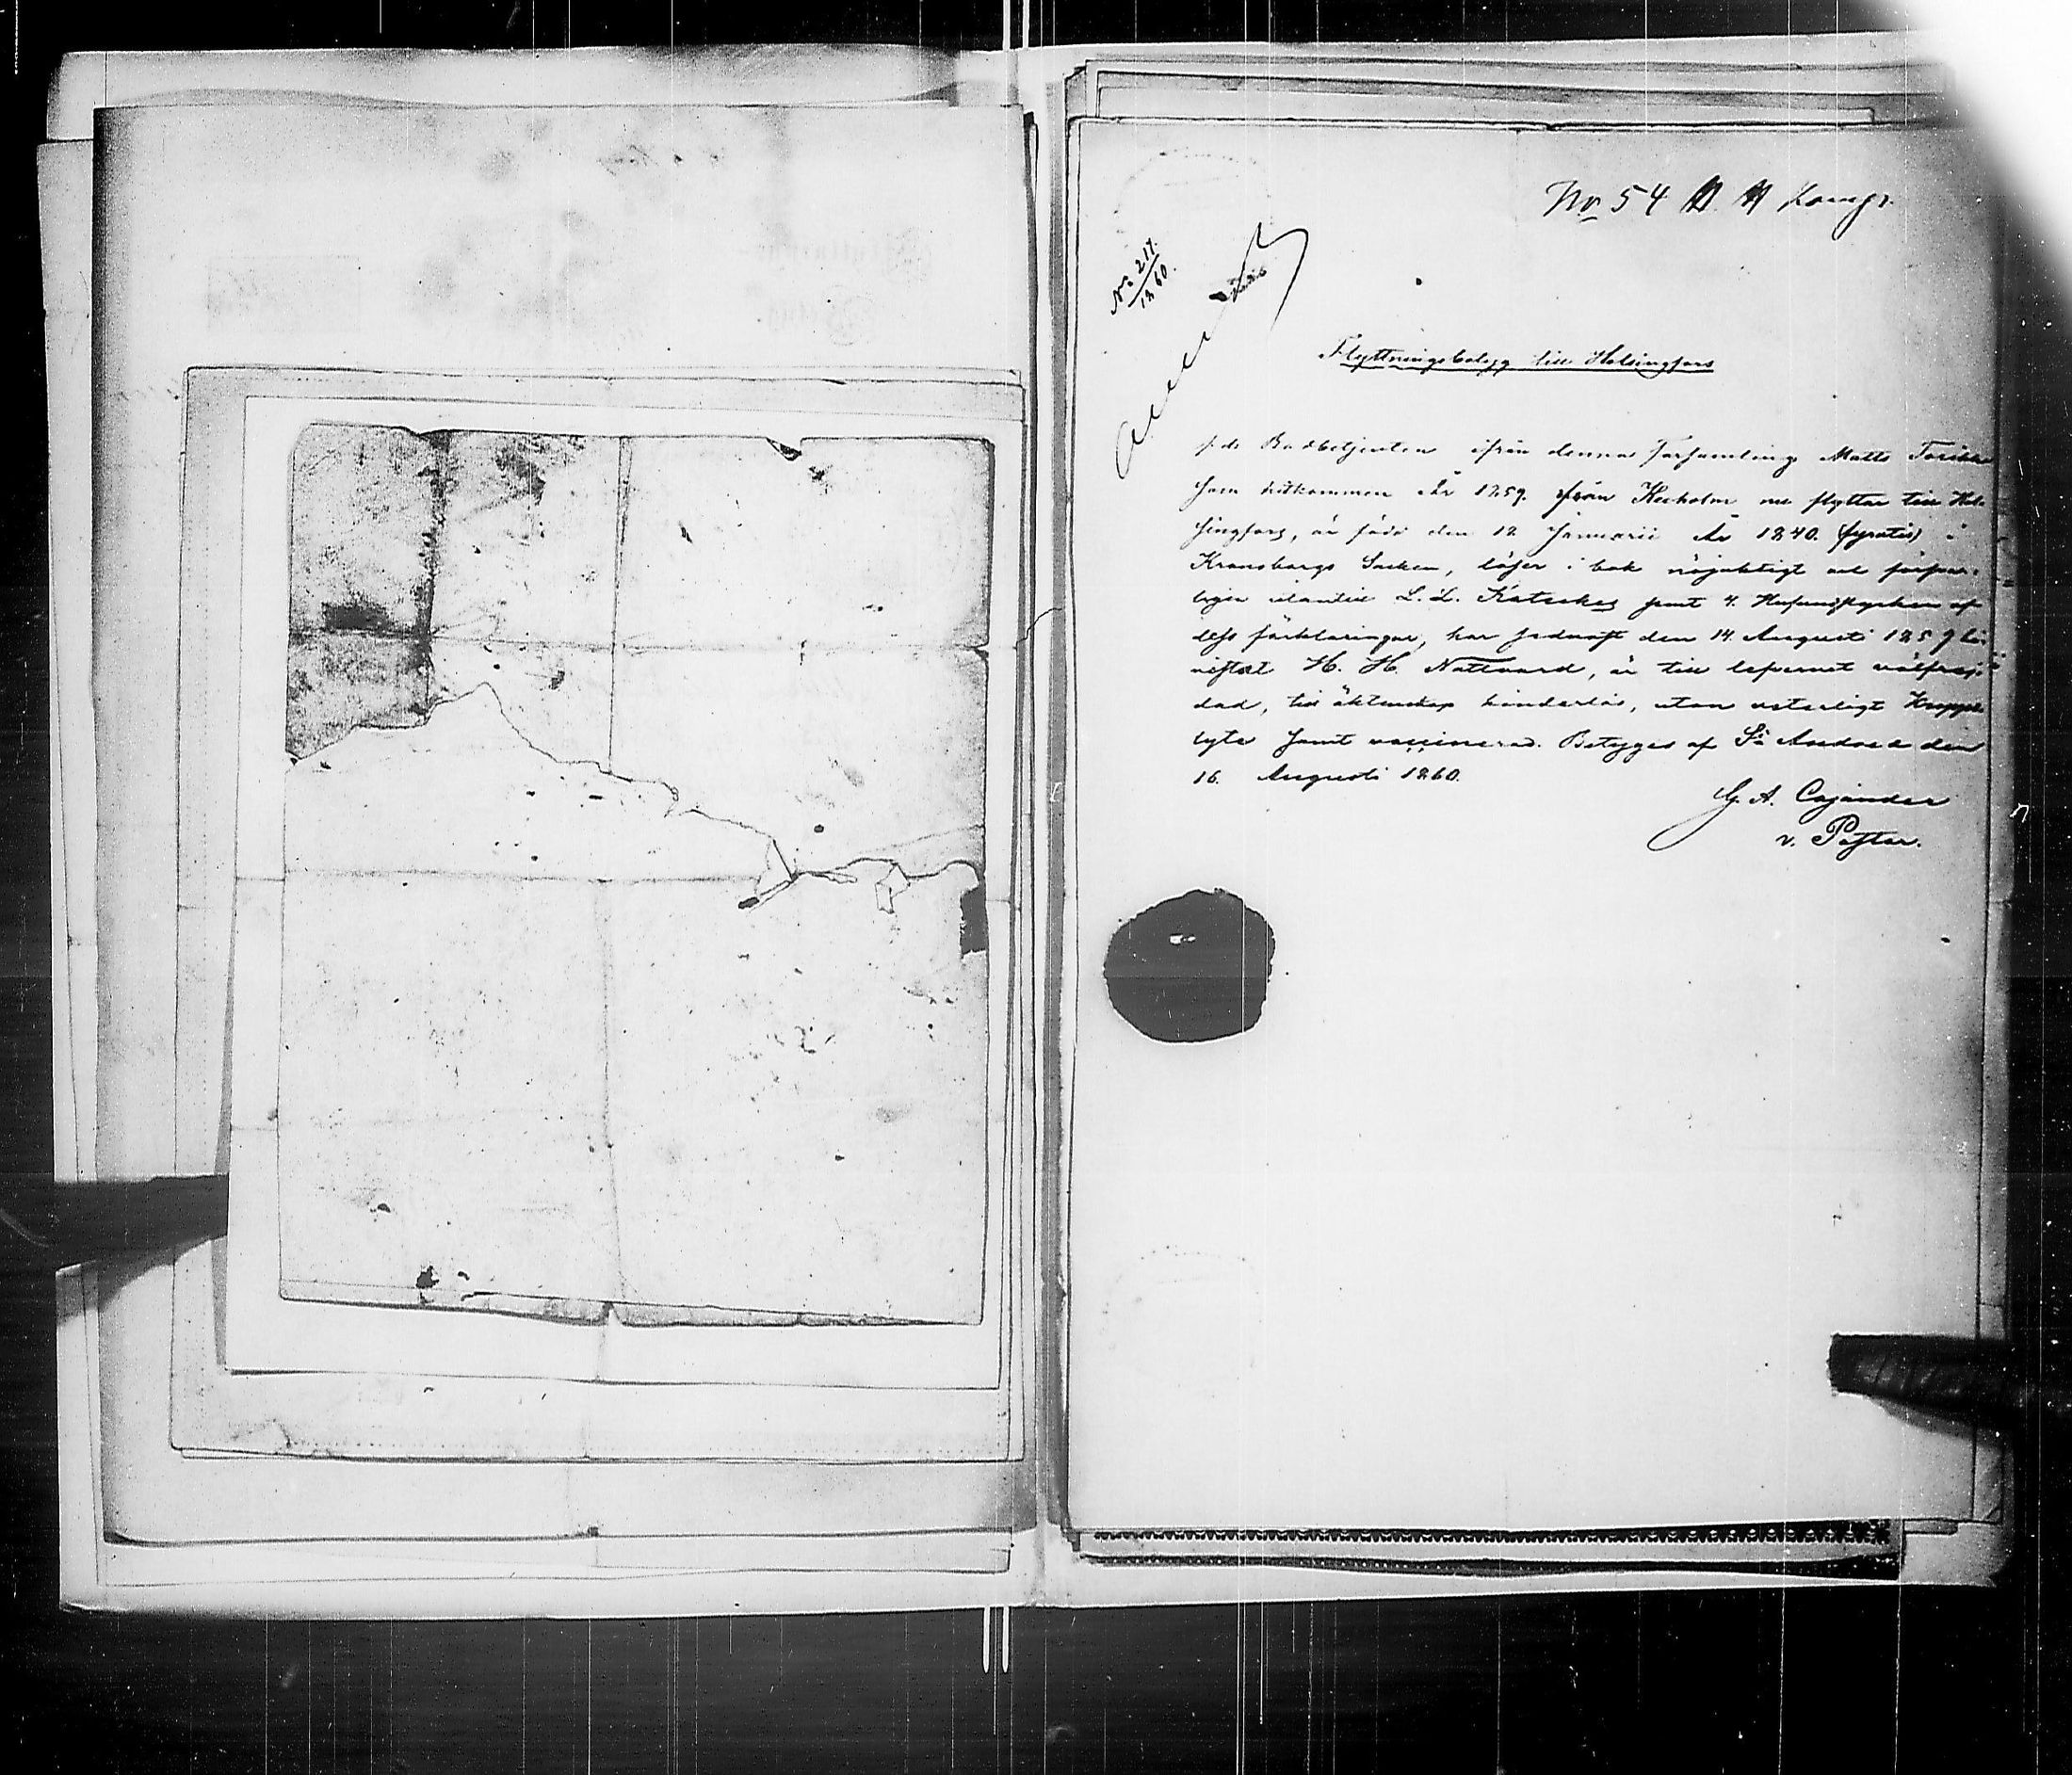 No 54
No 217.
1860.
Flyttningsbetyg till Helsingfors
f.d. Bodbetjenten ifrån denna Församling Matts
som hitkommen År 1859. från Kexholm nu flyttar till Hel-
singfors, är född den 12 Januarii År 1840. (fyratio) i
Kronoborgs Socken, läser i bok nöjaktigt och förfar-
ligen utantill L. L. Kateches jemt 4. Hufvudstycken af
dess förklaringar, har sednast den 14. Augusti 1859 be-
vistat H. H. Nattvard, är till lefvernet välfrej-
dad, till äktenskap hinderlös, utan veterligt
lyte samt vaccinerad. Betyges af St Andreæ den
16. Augusti 1860.
G. A. Cajander
v. Pastor.